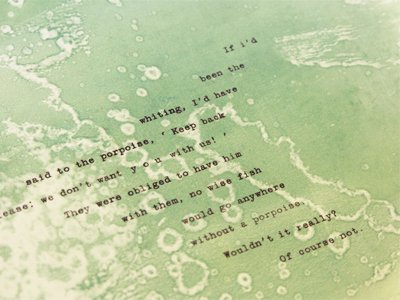 If i'd
been the
whiting, I'd have
said to the porpoise, ‘ Keep back
ease; we don't want y o u with us! ’
They were obliged to have him
with them, no wise fish
would go anywhere
without a porpoise.
Wouldn't it really?
Of course not.